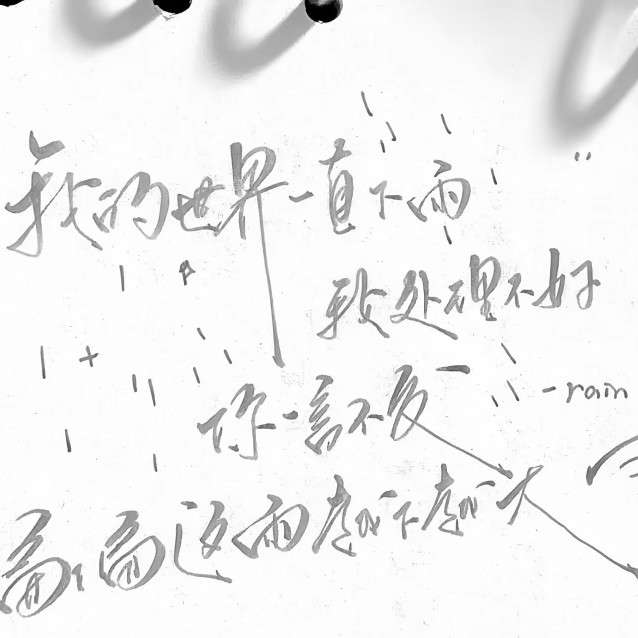 我的世界一直下雨
我处理不好
- rain
你一言不发
而这雨越下越大